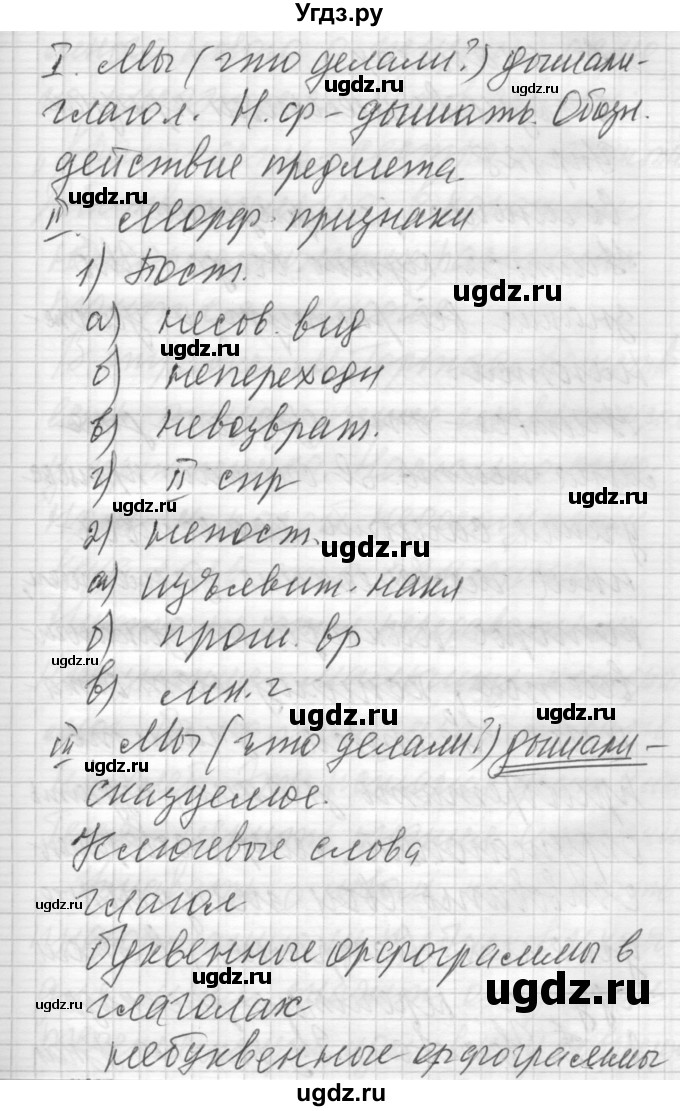 Угдз.ру
I. Мы (что делали?) дышали-
ugdz.ru ugdz.ru
глагол. Н.ф - дышать. Обозн.
действие предмета
ugdz.ru
II. Морф. признаки
1) Пост.
ugdz.ru
а) несов. вид
ugdz.ru
б) непереходн
в) невозврат.
г) II спр
ugdz.ru
ugdz.ru
2) непост.
ugdz.ru
а) изъявит. накл
б) прош. вр
ugdz.ru
в) мн. ч
ugdz.ru ugdz.ru
III Мы (что делали?) дышали -
ugdz.ru
сказуемое.
Ключевые слова
ugdz.ru ugdz.ru
глагол
буквенные орфограммы в
ugdz.ru ugdz.ru
ugdz.ru
глаголах
небуквенные орфограммы
ugdz.ru